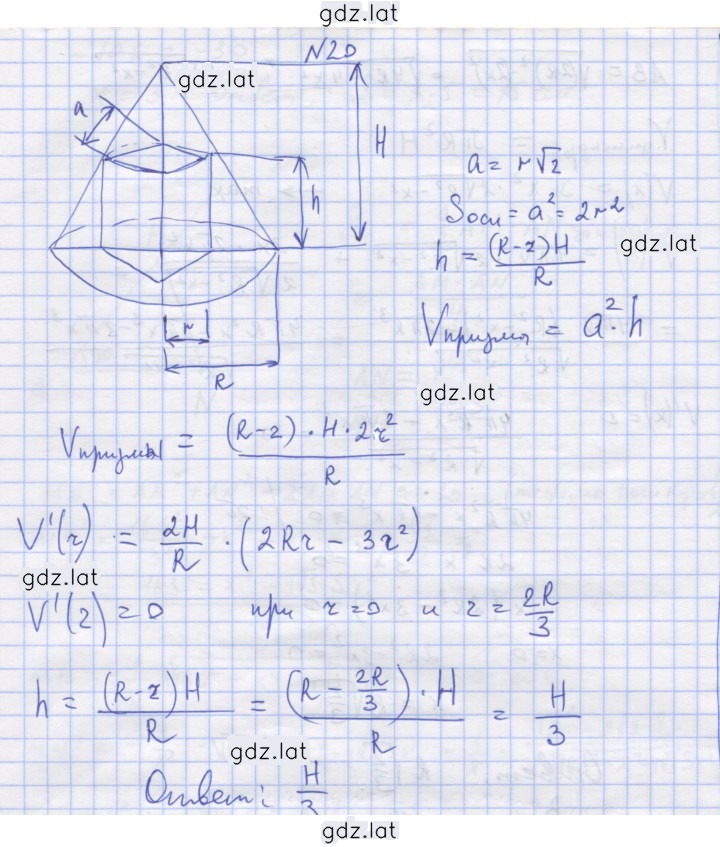 gdz.lat
N20
gdz.lat
a
H
h
a = r√2
Sосн = a² = 2r²
h = (R-r)H / R
gdz.lat
Vпризмы = a²·h
r
R
gdz.lat
Vпризмы = (R-r)·H·2r² / R
V'(r) = 2H/R · (2Rr - 3r²)
gdz.lat
V'(r) = 0 при r=0 и r = 2R/3
h = (R-r)H / R = (R - 2R/3)·H / R = H/3
gdz.lat
Ответ: H/3
gdz.lat